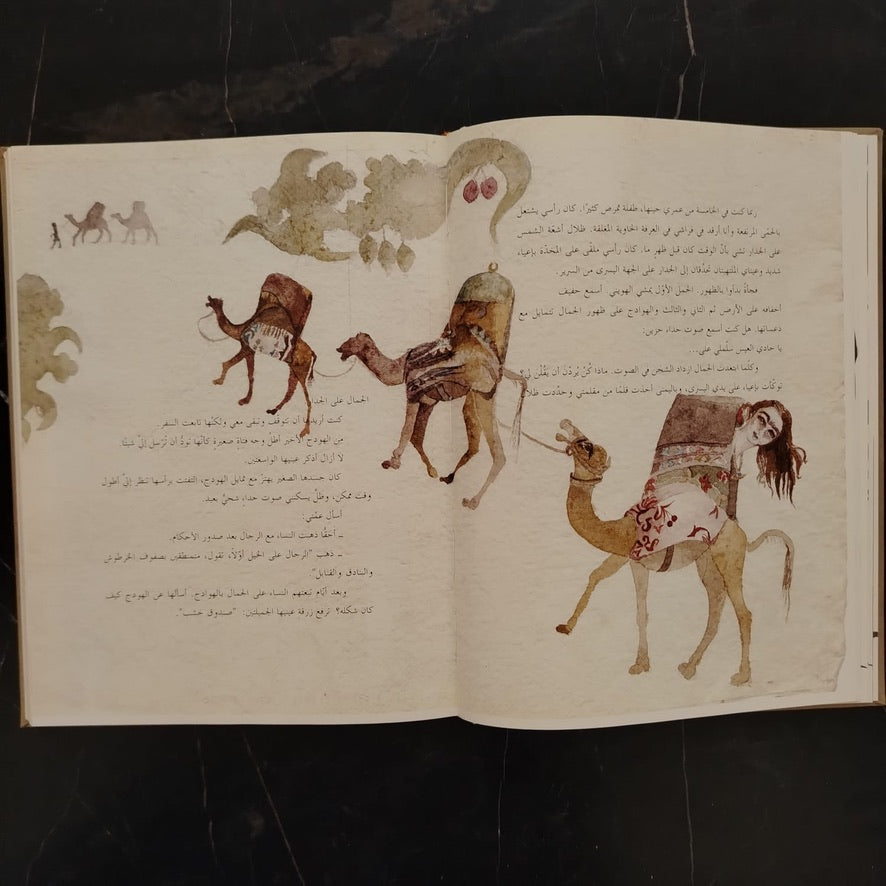 ربما كنت في الخامسة من عمري حينها، طفلة تمرض كثيرًا. كان رأسي يشتعل
بالحمّى المرتفعة وأنا أرقد في فراشي في الغرفة الخاوية المغلقة. ظلال أشعّة الشمس
على الجدار تشي بأنّ الوقت كان قبل ظهرٍ ما. كان رأسي ملقى على المخدّة بإعياء
شديد وعيناي الملتهبتان تحدّقان إلى الجدار على الجهة اليسرى من السرير.
فجأةً بدأوا بالظهور. الجمل الأوّل يمشي الهوينى. أسمع حفيف
أخفافه على الأرض ثم الثاني والثالث والهوادج على ظهور الجمال تتمايل مع
دعساتها. هل كنت أسمع صوت حداء حزين:
يا حادي العيس سلّملي على...
وكلّما ابتعدت الجمال ازداد الشجن في الصوت. ماذا كُنَّ يُرِدْنَ أن يَقُلْنَ لي؟
توكّأت بإعياء على يدي اليسرى، وباليمنى أخذت قلمًا من مقلمتي وحدّدت ظلال
الجمال على الجدار.
كنت أريدها أن تتوقف وتبقى معي ولكنّها تابعت السفر.
من الهودج الأخير أطلّ وجه فتاة صغيرة كأنّها تودّ أن تُرسل إليّ شيئًا.
لا أزال أذكر عينيها الواسعتين.
كان جسدها الصغير يهتزّ مع تمايل الهودج، التفتت برأسها تنظر إليّ أطول
وقت ممكن، وظلّ يسكنني صوت حداءٍ شجيٍّ بعيد.
أسأل عمّتي:
ـ أحقًّا ذهبت النساء مع الرجال بعد صدور الأحكام.
ـ ذهب "الرجال على الخيل أوّلًا، تقول، متمنطقين بصفوف الخرطوش
والبنادق والقنابل".
وبعد أيّام تبعتهم النساء على الجمال بالهوادج. أسألها عن الهودج كيف
كان شكله؟ ترفع زرقة عينيها الجميلتين: "صندوق خشب".